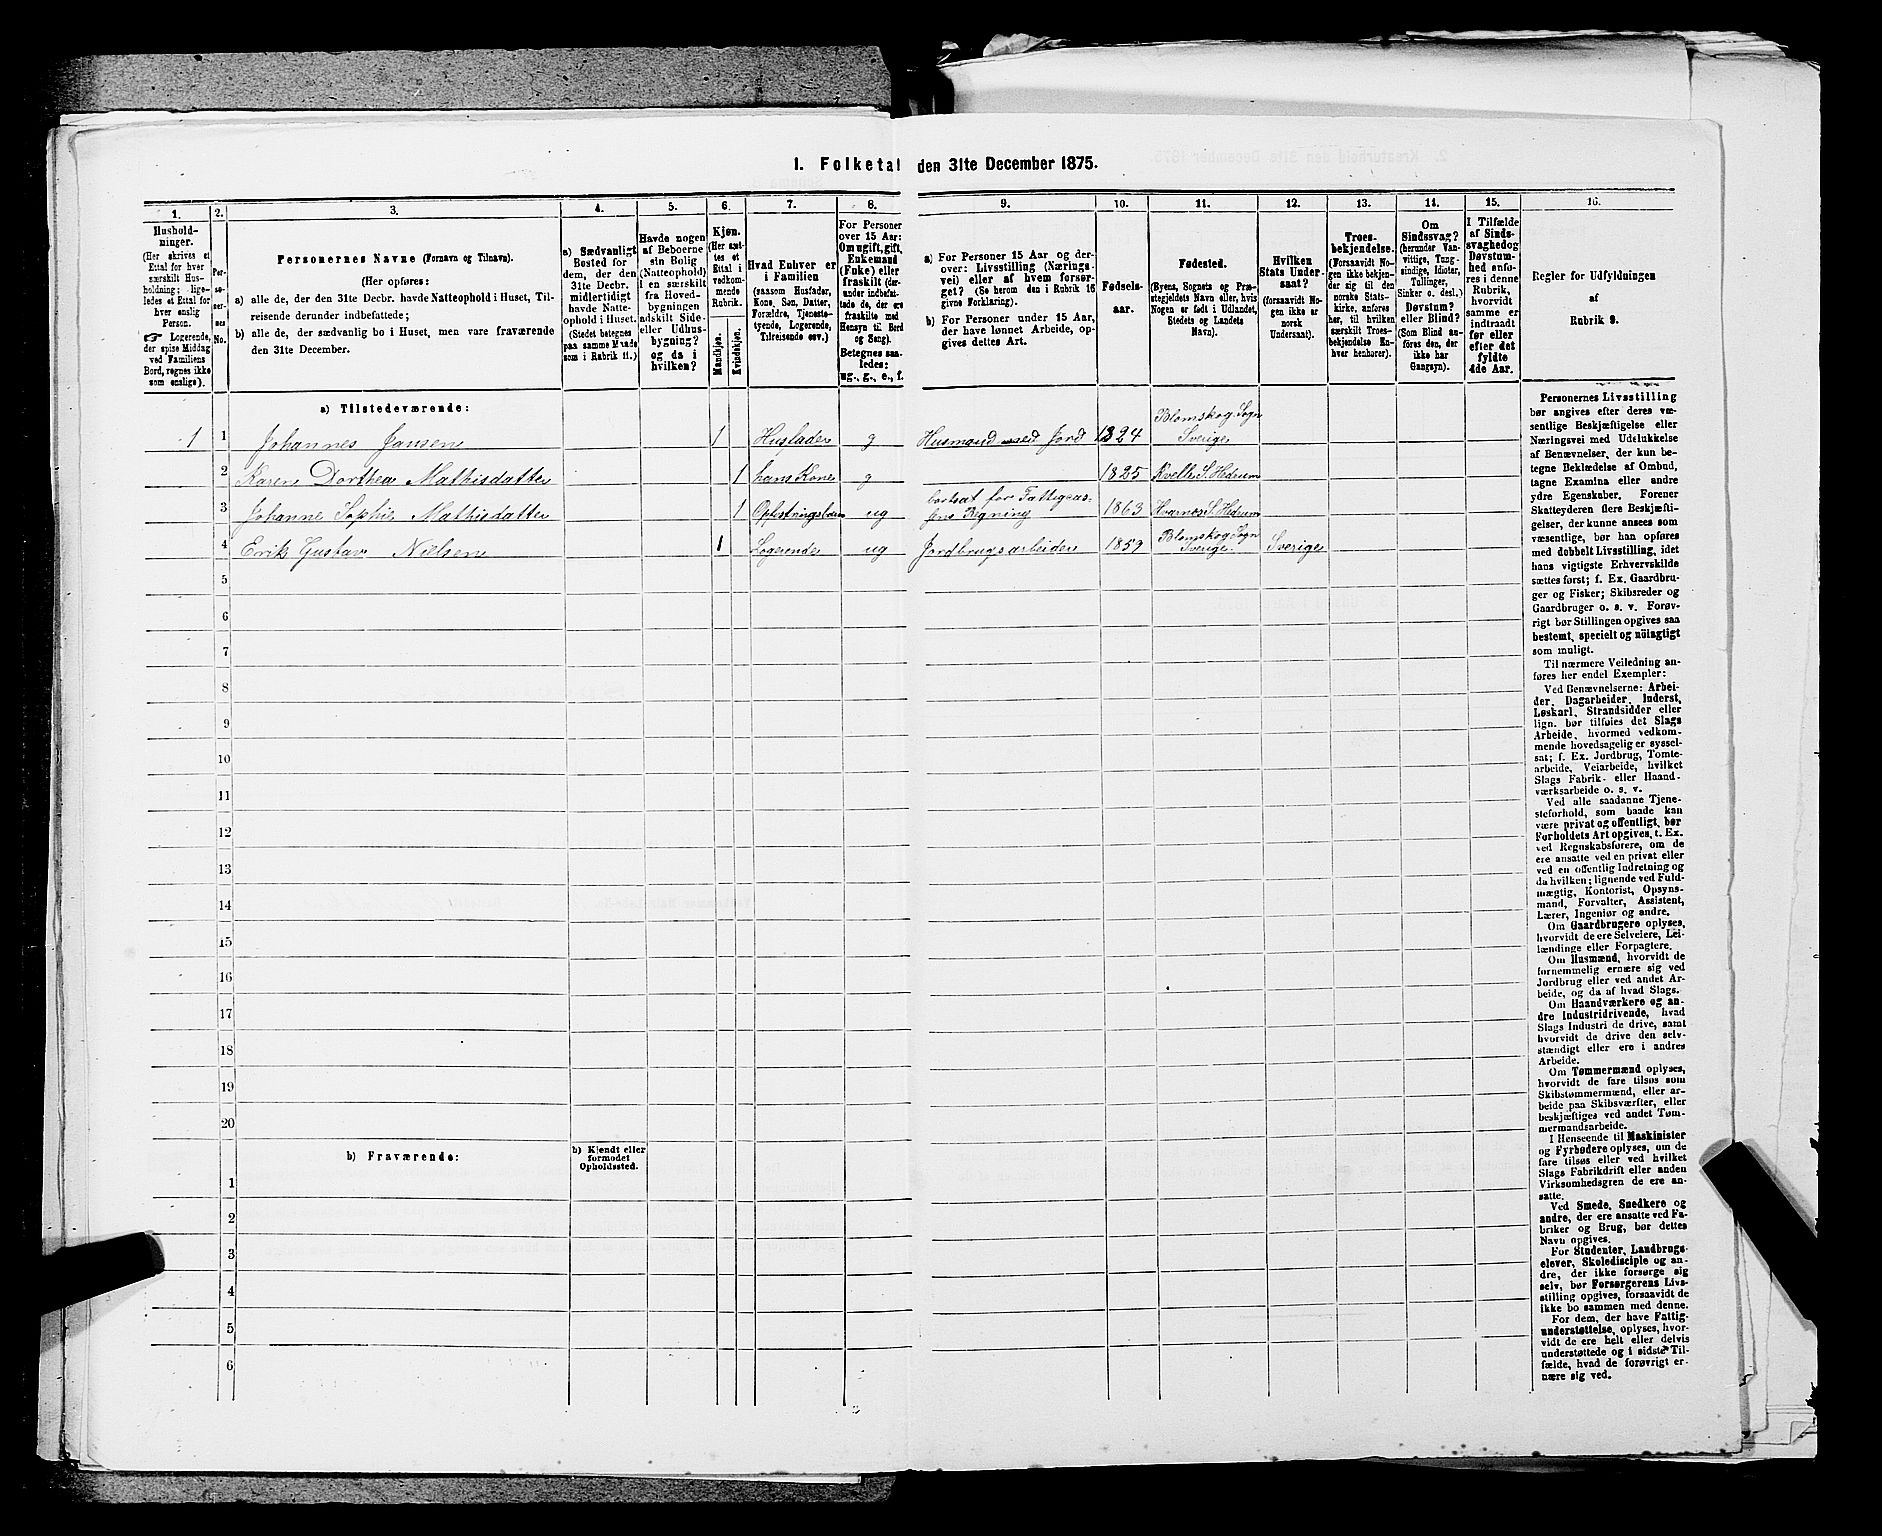 1. Folketal den 31te December 1875.
1.
Hushold-
ninger.
(Her skrives et
Ettal for hver
særskilt Hus-
holdning; lige-
ledes et Ettal for
hver enslig
Person.
☞ Logerende,
der spise Middag
ved Familiens
Bord, regnes ikke
som enslige).
2.
Per-
so-
ner-
nes
No.
3.
Personernes Navne (Fornavn og Tilnavn).
(Her opføres:
a) alle de, der den 31te Decbr. havde Natteophold i Huset, Til-
reisende derunder indbefattede;
b) alle de, der sædvanlig bo i Huset, men vare fraværende
den 31te December.
4.
a) Sædvanligt
Bosted for
dem, der den
31te Decbr.
midlertidigt
havde Natte-
ophold i Huset.
(Stedet betegnes
paa samme Maade
som i Rubrik 11.)
5.
Havde nogen
af Beboerne
sin Bolig
(Natteophold)
i en særskilt
fra Hoved-
bygningen
adskilt Side-
eller Udhus-
bygning?
og da i
hvilken?
6.
Kjøn.
(Her sæt-
tes et
Ettal i
vedkom-
mende
Rubrik.
Mandkjøn.
Kvindekjøn.
7.
Hvad Enhver er
i Familien
(saasom Husfader,
Kone, Søn, Datter,
Forældre, Tjeneste-
tyende, Logerende,
Tilreisende osv.)
8.
For Personer
over 15 Aar:
Om ugift, gift,
Enkemand
(Enke) eller
fraskilt (der-
under indbefat-
tede de, der ere
fraskilte med
Hensyn til Bord
og Seng).
Betegnes saa-
ledes:
ug., g., e., f.
9.
a) For Personer 15 Aar og der-
over: Livsstilling (Nærings-
vei) eller af hvem forsør-
get? (Se herom den i Rubrik 16
givne Forklaring).
b) For Personer under 15 Aar,
der have lønnet Arbeide, op-
gives dettes Art.
10.
Fødsels-
aar.
11.
Fødested.
(Byens, Sognets og Præ-
stegjeldets Navn eller, hvis
Nogen er født i Udlandet,
Stedets og Landets
Navn).
12.
Hvilken
Stats Under-
saat?
(forsaavidt No-
gen ikke er
norsk
Undersaat).
13.
Troes-
bekjendelse.
(Forsaavidt No-
gen ikke bekjen-
der sig til den
norske Stats-
kirke, anføres
her, til hvilken
særskilt Troes-
bekjendelse En-
hver henhører).
14.
Om
Sindssvag?
(herunder Van-
vittige, Tung-
sindige, Idioter,
Tullinger,
Sinker o. desl.)
Døvstum?
eller Blind?
(Som Blind an-
føres den, der
ikke har
Gangsyn).
15.
I Tilfælde
af Sinds-
svaghed og
Døvstum-
hed anfø-
res i denne
Rubrik,
hvorvidt
samme er
indtraadt
før eller
efter det
fyldte
4de Aar.
16.
Regler for Udfyldningen
af
Rubrik 9.
a) Tilstedeværende:
1 1 Johannes Jansen 1 Husfader g Husmand med Jord 1824 Blomskog Sogn
Sverige
2 Karen Dorthea Mathisdatter 1 hans Kone g 1825 Kvelle S. Hedrum
3 Johanne Sophie Mathisdatter 1 Opfostringsbarn ug bortsat for Fattigcas-
sens Regning 1863 Hvarnes S. Hedrum
4 Erik Gustav Nielsen 1 Logerende ug Jordbrugsarbeider 1859 Blomskog Sogn
Sverige. Sverige
5
6
7
8
9
10
11
12
13
14
15
16
17
18
19
20
b) Fraværende:
b) Kjendt eller
formodet
Opholdssted.
1
2
3
4
5
6
Personernes Livsstilling
bør angives efter deres væ-
sentlige Beskjæftigelse eller
Næringsvei med Udelukkelse
af Benævnelser, der kun be-
tegne Beklædelse af Ombud,
tagne Examina eller andre
ydre Egenskaber. Forener
Skatteyderen flere Beskjæfti-
gelser, der kunne ansees som
væsentlige, bør han opføres
med dobbelt Livsstilling, idet
hans vigtigste Erhvervskilde
sættes først; f. Ex. Gaardbru-
ger og Fisker; Skibsreder og
Gaardbruger o. s. v. Forøv-
rigt bør Stillingen opgives saa
bestemt, specielt og nöiagtigt
som muligt.
Til nærmere Veiledning an-
føres her endel Exempler:
Ved Benævnelserne: Arbei-
der, Dagarbeider, Inderst,
Løskarl, Strandsidder eller
lign. bør tilføies det Slags
Arbeide, hvormed vedkom-
mende hovedsagelig er syssel-
sat; f. Ex. Jordbrug, Tomte-
arbeide, Veiarbeide, hvilket
Slags Fabrik- eller Haand-
værksarbeide o. s. v.
Ved alle saadanne Tjene-
steforhold, som baade kan
være privat og offentligt, bør
Forholdets Art opgives, t. Ex.
ved Regnskabsførere, om de
ere ansatte ved en privat eller
ved en offentlig Indretning og
da hvilken; lignende ved Fuld-
mægtig, Kontorist, Opsyns-
mand, Forvalter, Assistent,
Lærer, Ingeniør og andre.
Om Gaardbrugere oplyses,
hvorvidt de ere Selveiere, Lei-
lændinge eller Forpagtere.
Om Husmænd, hvorvidt de
fornemmelig ernære sig ved
Jordbrug eller ved andet Ar-
beide, og da af hvad Slags.
Om Haandværkere og an-
dre Industridrivende, hvad
Slags Industri de drive, samt
hvorvidt de drive den selv-
stændigt eller ere i andres
Arbeide.
Om Tømmermænd oplyses,
hvorvidt de fare tilsøs som
Skibstømmermænd, eller ar-
beide paa Skibsværfter, eller
beskjæftiges ved andet Tøm-
mermandsarbeide.
I Henseende til Maskinister
og Fyrbødere oplyses, om de
fare tilsøs eller ved hvilket
Slags Fabrikdrift eller anden
Virksomhedsgren de ere an-
satte.
Ved Smede, Snedkere og
andre, der ere ansatte ved Fa-
briker og Brug, bør dettes
Navn opgives.
For Studenter, Landbrugs-
elever, Skoledisciple og an-
dre, der ikke forsørge sig
selv, bør Forsørgerens Livs-
stilling opgives, forsaavidt de
ikke bo sammen med denne.
For dem, der have Fattig-
understøttelse, oplyses, hvor-
vidt de ere helt eller delvis
understøttede og i sidste Til-
fælde, hvad de forøvrigt er-
nære sig ved.